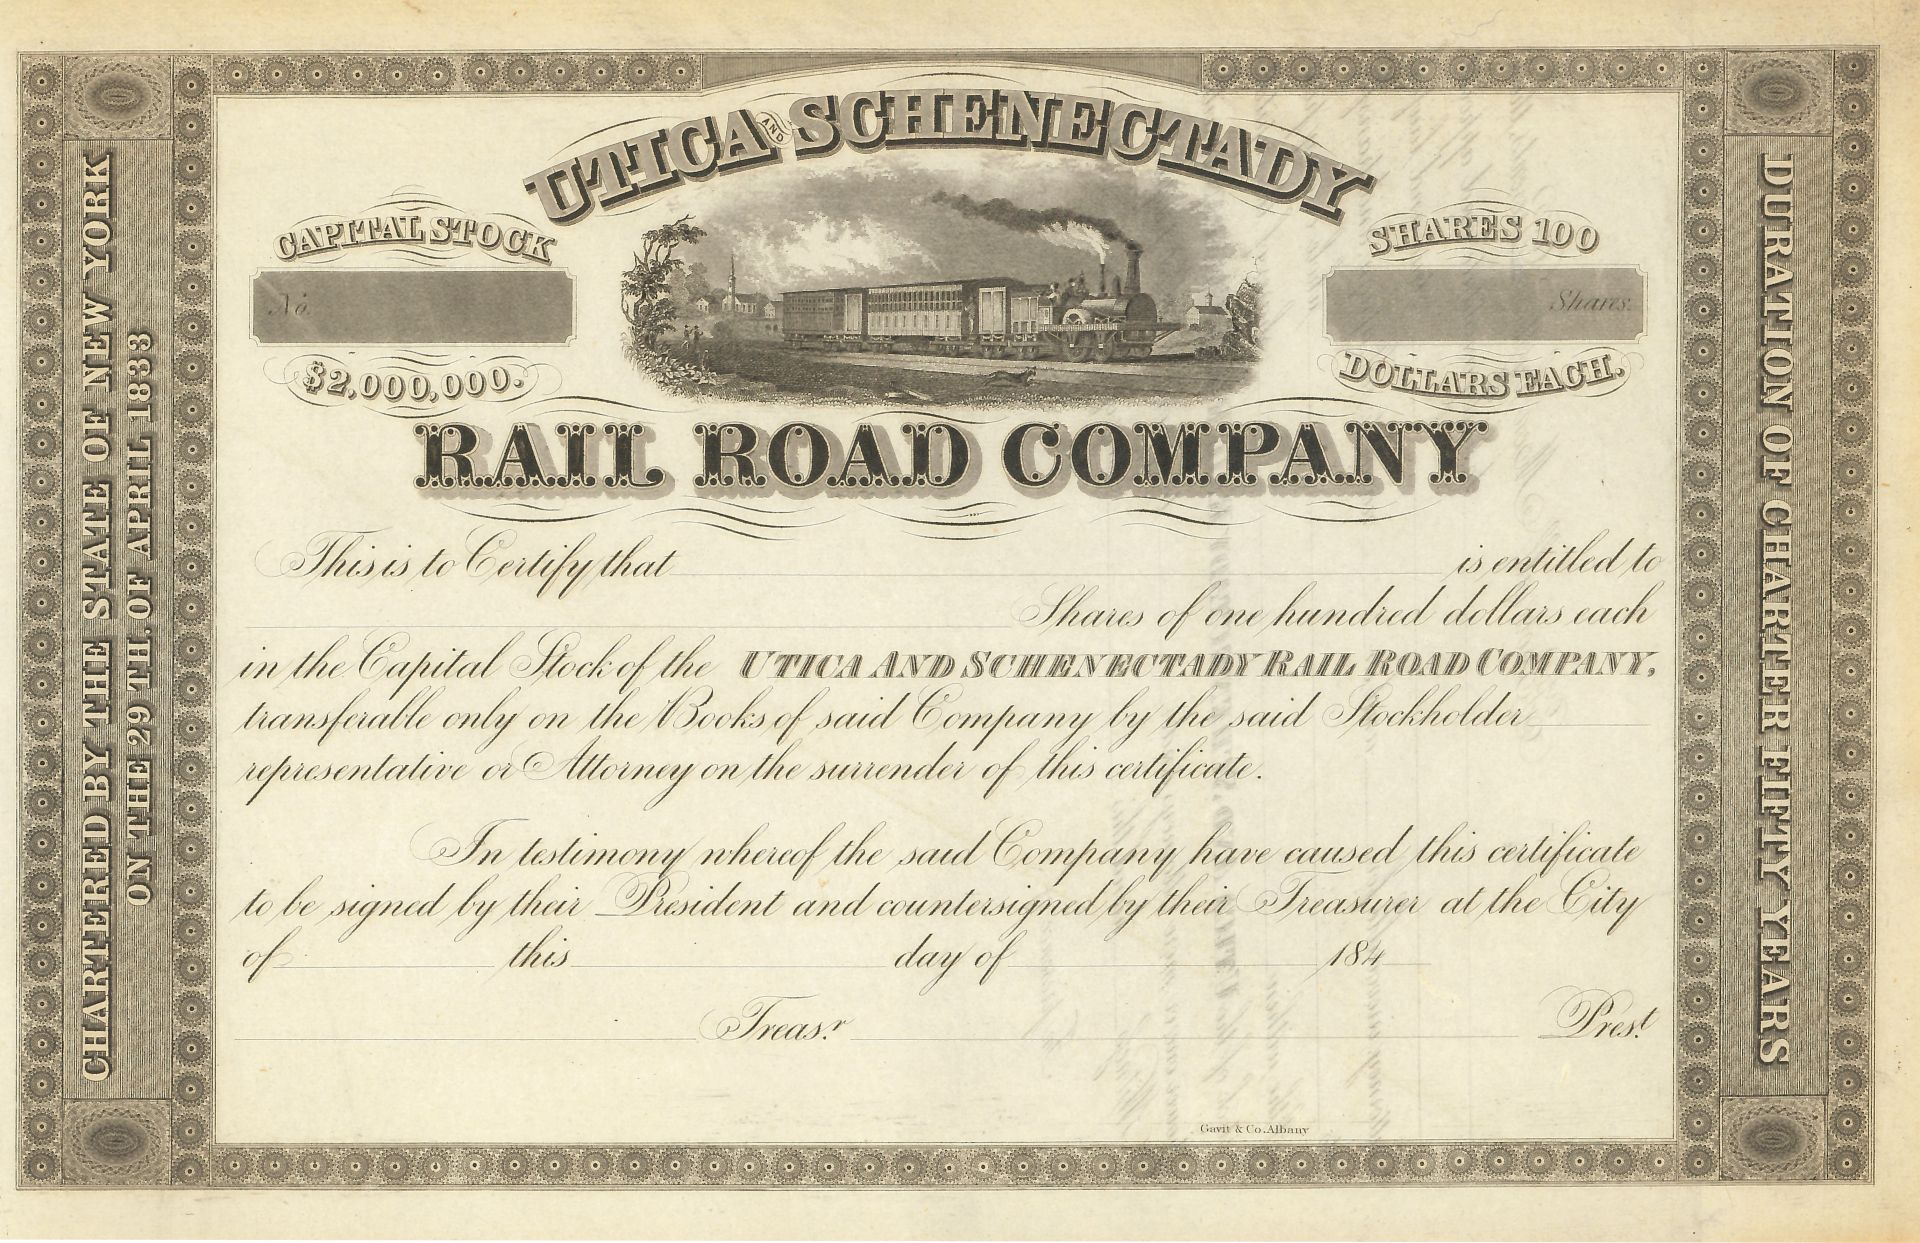 UTICA AND SCHENECTADY
CAPITAL STOCK
No.
$2,000,000.
SHARES 100
Shares.
DOLLARS EACH.
RAIL ROAD COMPANY
This is to Certify that is entitled to
Shares of one hundred dollars each
in the Capital Stock of the UTICA AND SCHENECTADY RAIL ROAD COMPANY,
transferable only on the Books of said Company by the said Stockholder
representative or Attorney on the surrender of this certificate.
In testimony whereof the said Company have caused this certificate
to be signed by their President and countersigned by their Treasurer at the City
of this day of 184
Treasr. Prest.
Gavit & Co. Albany
CHARTERED BY THE STATE OF NEW YORK
ON THE 29TH. OF APRIL 1833
DURATION OF CHARTER FIFTY YEARS